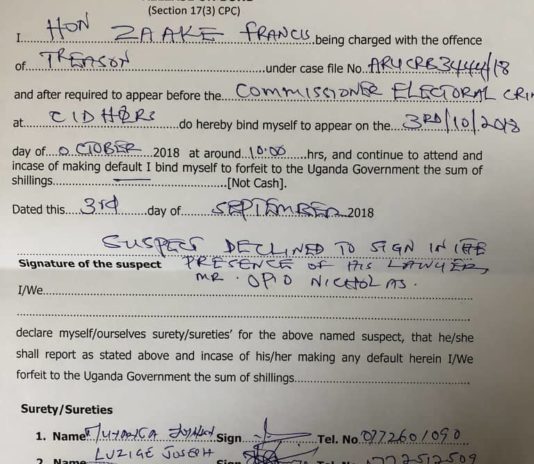 (Section 17(3) CPC)
I HON ZAAKE FRANCIS being charged with the offence
of TREASON under case file No. ARUCRB3444/18
and after required to appear before the COMMISSIONER ELECTORAL CRI
at CID HQRS do hereby bind myself to appear on the 3RD/10/2018
day of OCTOBER 2018 at around 10:00 hrs, and continue to attend and
incase of making default I bind myself to forfeit to the Uganda Government the sum of
shillings [Not Cash].
Dated this 3rd day of SEPTEMBER 2018
SUSPECT DECLINED TO SIGN IN THE
Signature of the suspect PRESENCE OF HIS LAWYER,
MR. OPIO NICHOLAS.
I/We
declare myself/ourselves surety/sureties' for the above named suspect, that he/she
shall report as stated above and incase of his/her making any default herein I/We
forfeit to the Uganda Government the sum of shillings
Surety/Sureties
1. Name Sign Tel. No 0772601090
2. Name LUZIGE JOSEPH Sign Tel. No 0772512509